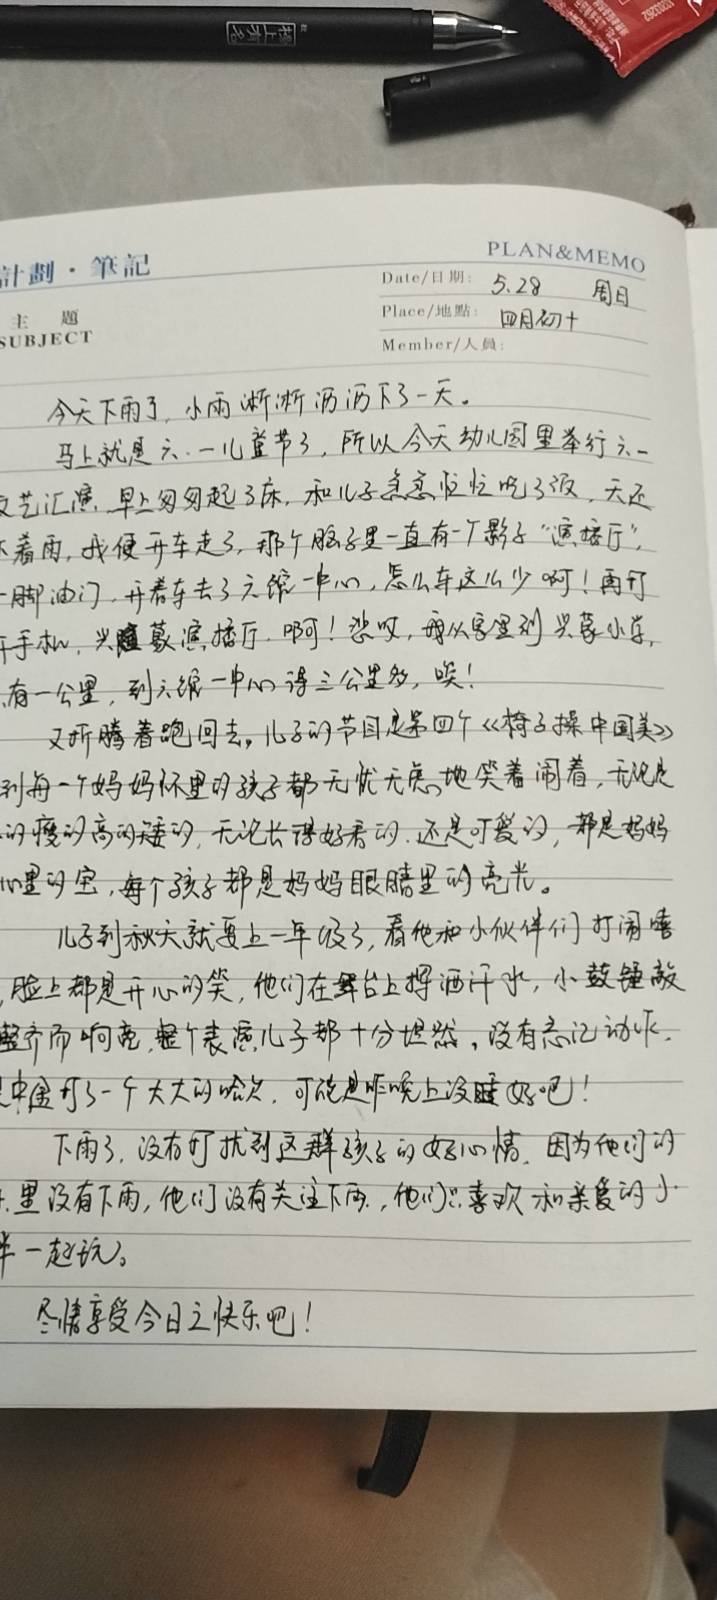 榜上有名
計劃·筆記
PLAN&MEMO
主 題
SUBJECT
Date/日期: 5.28 周日
Place/地點: 四月初十
Member/人員:
今天下雨了,小雨淅淅沥沥下了一天。
马上就是六.一儿童节了,所以今天幼儿园里举行六一
文艺汇演,早上匆匆起了床,和儿子急急忙忙吃了饭,天还
着雨,我便开车走了,那个脑子里一直有一个影子“演播厅”,
一脚油门,开着车去了六馆一中心,怎么车这么少啊!再打
开手机,兴蒙演播厅,啊!悲叹,我从家里到兴蒙小学,
有一公里,到六馆一中心得三公里多,唉!
又折腾着跑回去。儿子的节目是第四个《椅子操中国美》
到每一个妈妈怀里的孩子都无忧无虑地笑着闹着,无论是
的瘦的高的矮的,无论长得好看的.还是可爱的,都是妈妈
心里的宝,每个孩子都是妈妈眼睛里的亮光。
儿子到秋天就要上一年级了,看他和小伙伴们打闹嘻
,脸上都是开心的笑,他们在舞台上挥洒汗水,小鼓锤敲
整齐而响亮,整个表演儿子都十分坦然,没有忘记动作,
中间打了一个大大的哈欠,可能是昨晚上没睡好吧!
下雨了,没有打扰到这群孩子的好心情,因为他们的
里没有下雨,他们没有关注下雨,他们只喜欢和亲爱的小
伴一起玩。
尽情享受今日之快乐吧!